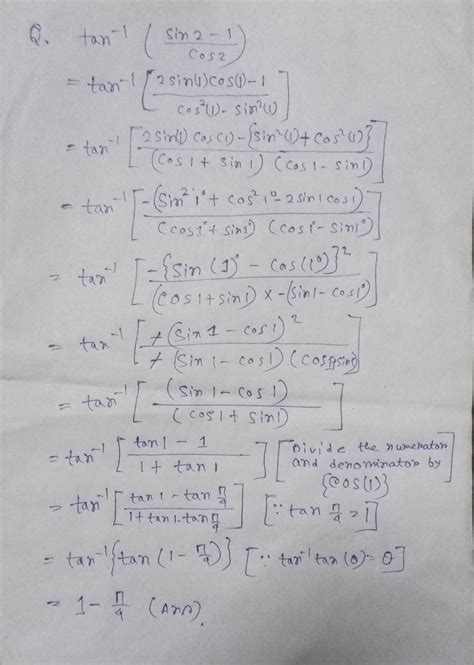 Q. tan⁻¹ ( sin2 - 1 / cos2 )
= tan⁻¹ [ 2 sin(1) cos(1) - 1 / cos²(1) - sin²(1) ]
= tan⁻¹ [ 2 sin(1) cos(1) - {sin²(1) + cos²(1)} / (cos1 + sin1) (cos1 - sin1) ]
= tan⁻¹ [ -(sin²1° + cos²1° - 2 sin1 cos1) / (cos1° + sin1°) (cos1° - sin1°) ]
= tan⁻¹ [ -{sin(1)° - cos(1°)}² / (cos1 + sin1) × -(sin1 - cos1°) ]
= tan⁻¹ [ -(sin1 - cos1)² / -(sin1 - cos1) (cos1+sin1) ]
= tan⁻¹ [ (sin1 - cos1) / (cos1 + sin1) ]
= tan⁻¹ [ tan1 - 1 / 1 + tan1 ] [Divide the numerator and denominator by {cos(1)}]
= tan⁻¹ [ tan1 - tan π/4 / 1 + tan1 . tan π/4 ] [∵ tan π/4 = 1]
= tan⁻¹ {tan (1 - π/4)} [∵ tan⁻¹ tan(θ) = θ]
= 1 - π/4 (Ans).